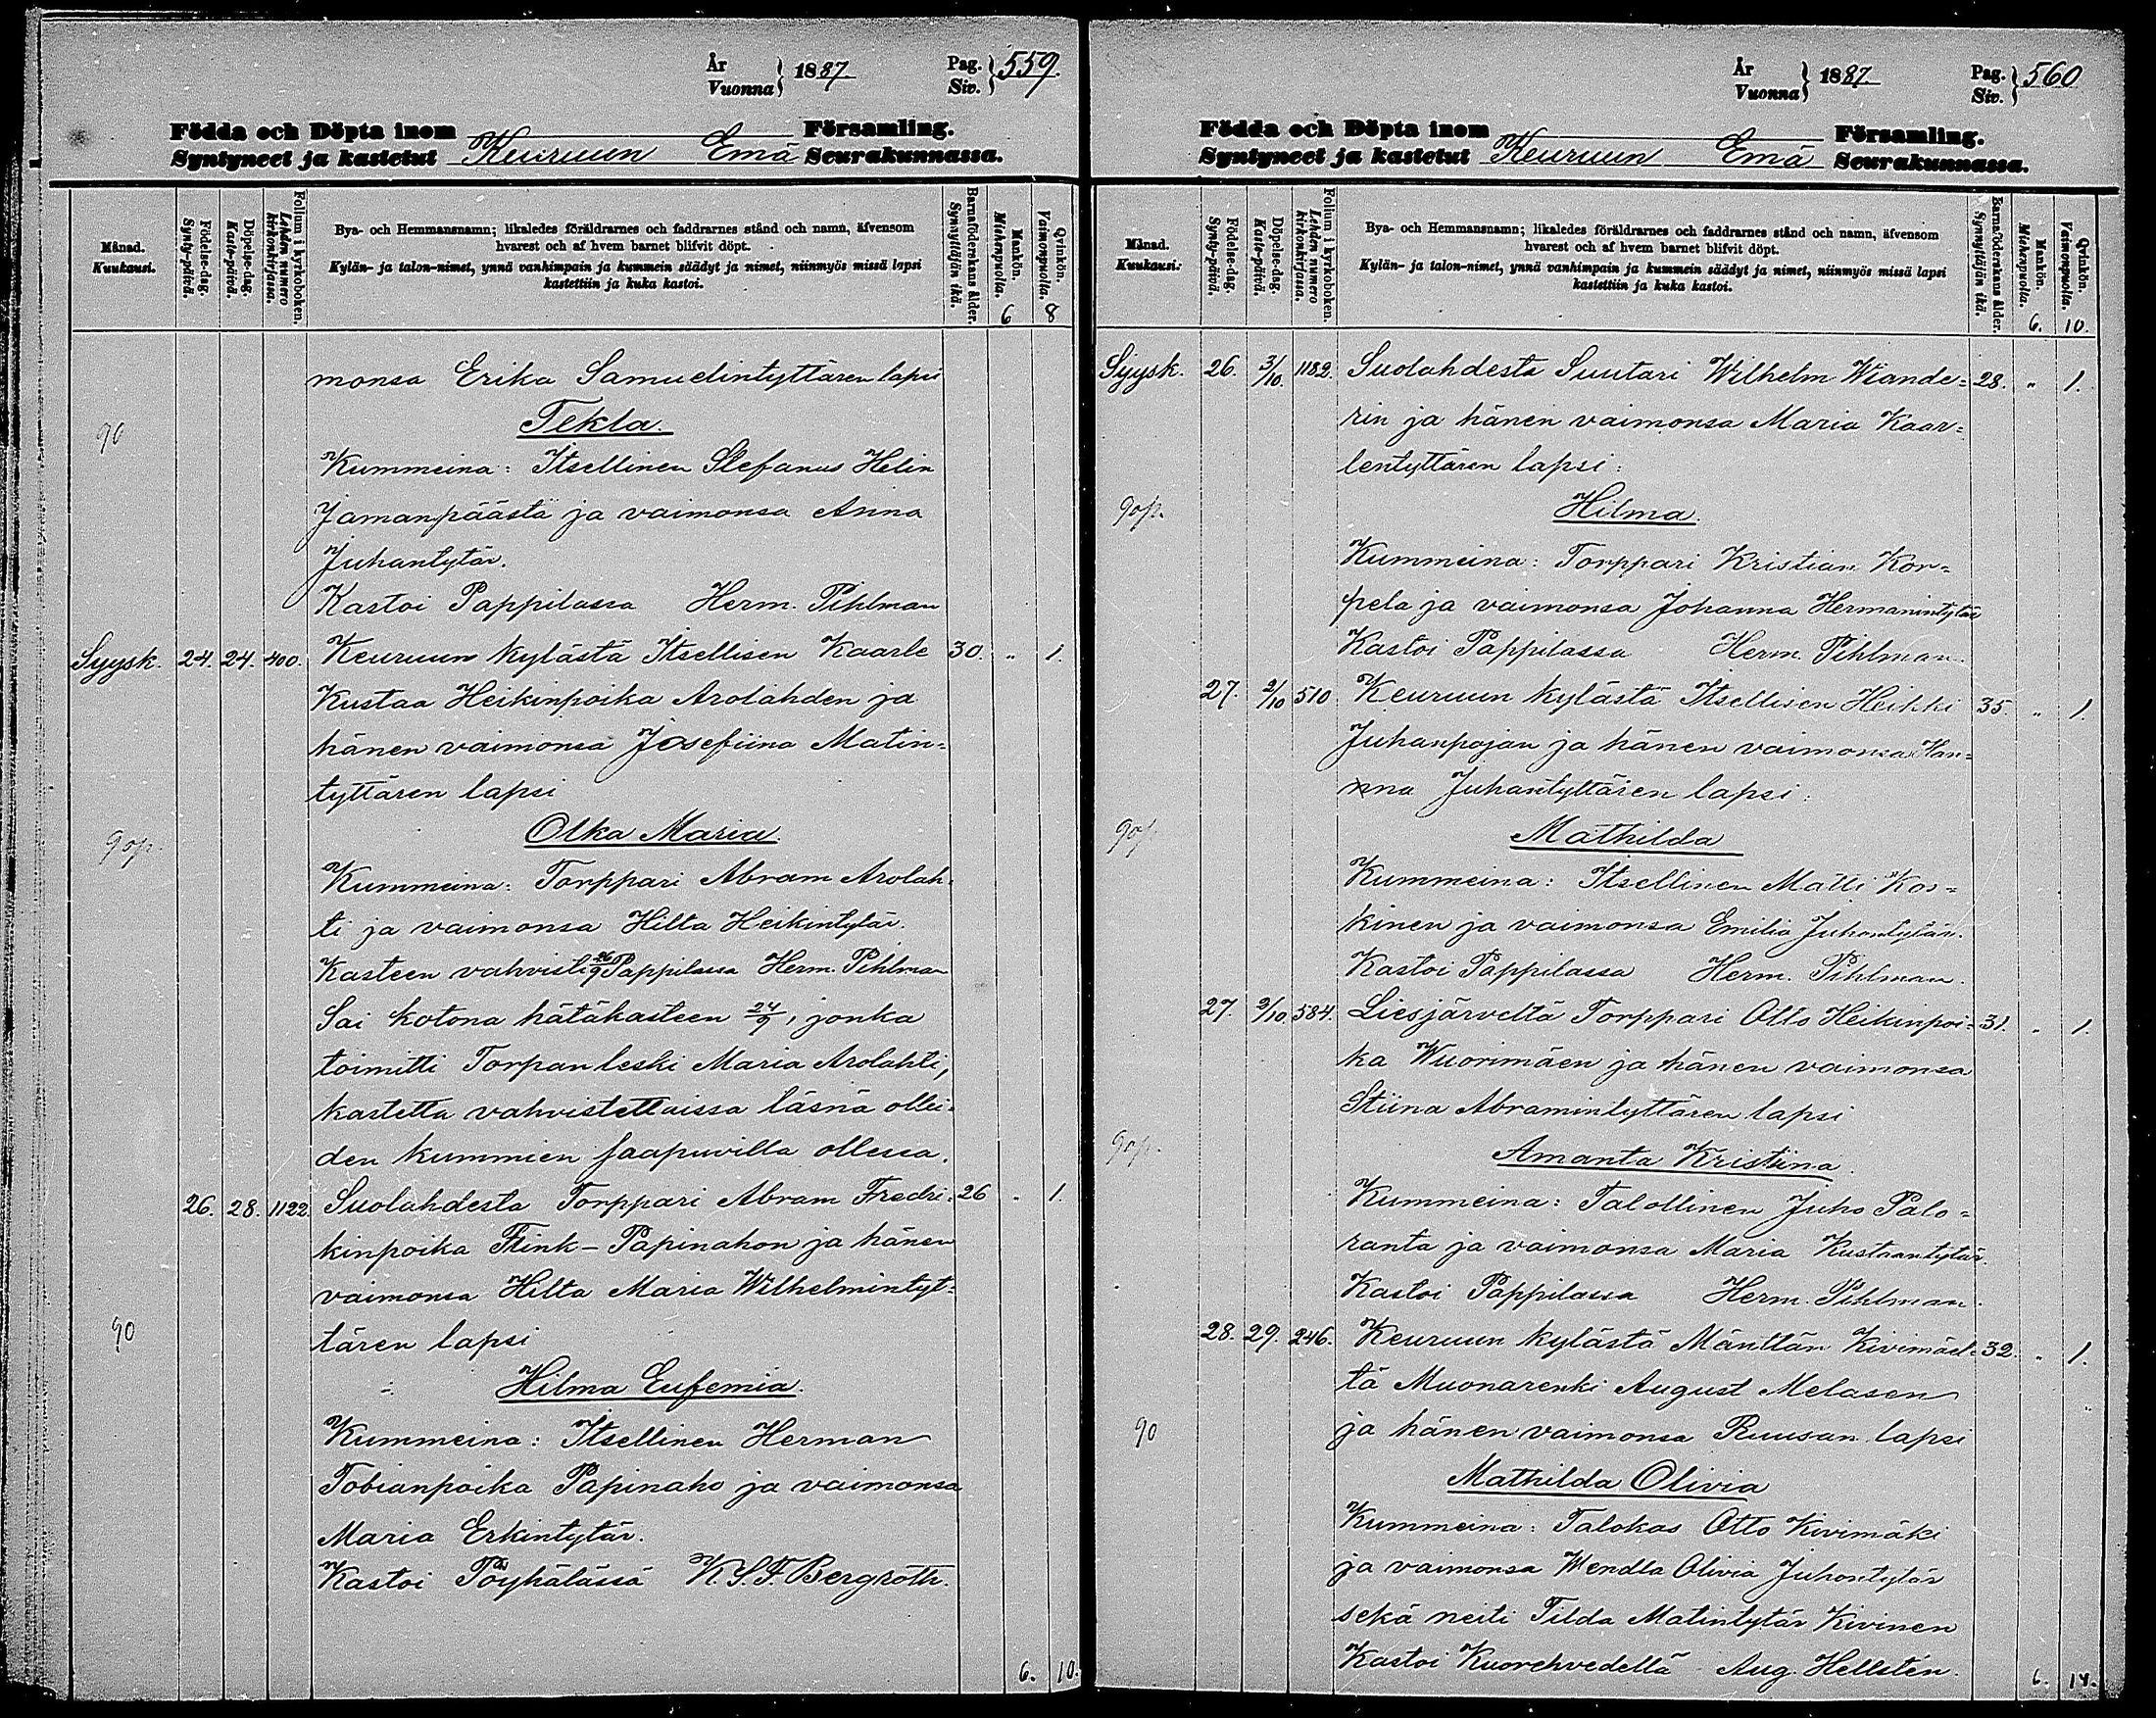 År
Vuonna } 1887.
Pag.
Siv. } 559.
Födda och Döpta inom Församling.
Syntyneet ja kastetut Keuruun Emä Seurakunnassa.
Månad.
Kuukausi.
Födelse-dag.
Synty-päivä.
Döpelse-dag.
Kaste-päivä.
Folium i kyrkoboken.
Lehden numero kirkonkirjassa.
Bya- och Hemmansnamn; likaledes föräldrarnes och faddrarnes stånd och namn, äfvensom
hvarest och af hvem barnet blifvit döpt.
Kylän- ja talon-nimet, ynnä vanhimpain ja kummein säädyt ja nimet, niinmyös missä lapsi
kastettiin ja kuka kastoi.
Barnaföderskans ålder.
Synnyttäjän ikä.
Mankön.
Miehenpuolia.
Qvinkön.
Vaimonpuolia.
6 8
monsa Erika Samuelintyttären lapsi
90 Tekla.
Kummeina: Itsellinen Stefanus Helin
Jamanpäästä ja vaimonsa Anna
Juhantytär.
Kastoi Pappilassa Herm. Pihlman
Syysk. 24. 24. 400. Keuruun kylästä Itsellisen Kaarle 30. " 1.
Kustaa Heikinpoika Arolahden ja
hänen vaimonsa Josefiina Matin=
tyttären lapsi
90p. Olka Maria.
Kummeina: Torppari Abram Arolah=
ti ja vaimonsa Hilta Heikintytär.
Kasteen vahvisti 26/9 Pappilassa Herm. Pihlman
Sai kotona hätäkasteen 24/9, jonka
toimitti Torpan leski Maria Arolahti,
kastetta vahvistettaissa läsnä ollei=
den kummien saapuvilla ollessa.
26. 28. 1122. Suolahdesta Torppari Abram Fredri= 26 " 1.
kinpoika Flink - Papinahon ja hänen
vaimonsa Hilta Maria Wilhelmintyt=
90 tären lapsi
Hilma Eufemia.
Kummeina: Itsellinen Herman
Tobianpoika Papinaho ja vaimonsa
Maria Erkintytär.
Kastoi Pöyhälässä K.S.F. Bergroth.
6. 10.
År
Vuonna } 1887.
Pag.
Siv. } 560
Födda och Döpta inom Församling.
Syntyneet ja kastetut Keuruun Emä Seurakunnassa.
Månad.
Kuukausi.
Födelse-dag.
Synty-päivä.
Döpelse-dag.
Kaste-päivä.
Folium i kyrkoboken.
Lehden numero kirkonkirjassa.
Bya- och Hemmansnamn; likaledes föräldrarnes och faddrarnes stånd och namn, äfvensom
hvarest och af hvem barnet blifvit döpt.
Kylän- ja talon-nimet, ynnä vanhimpain ja kummein säädyt ja nimet, niinmyös missä lapsi
kastettiin ja kuka kastoi.
Barnaföderskans ålder.
Synnyttäjän ikä.
Mankön.
Miehenpuolia.
Qvinkön.
Vaimonpuolia.
6. 10.
Syysk. 26. 3/10. 1182. Suolahdesta Suutari Wilhelm Wiande= 28. " 1.
rin ja hänen vaimonsa Maria Kaar=
lentyttären lapsi:
90p. Hilma.
Kummeina: Torppari Kristian Kor=
pela ja vaimonsa Johanna Hermanintytär
Kastoi Pappilassa Herm. Pihlman.
27. 2/10 510 Keuruun kylästä Itsellisen Heikki 35. " 1.
Juhanpojan ja hänen vaimonsa Han=
nna Juhantyttären lapsi:
90p Mathilda
Kummeina: Itsellinen Matti Kos=
kinen ja vaimonsa Emilia Juhontytär.
Kastoi Pappilassa Herm. Pihlman.
27. 2/10. 584. Liesjärveltä Torppari Otto Heikinpoi= 31. " 1.
ka Wuorimäen ja hänen vaimonsa
Stiina Abramintyttären lapsi
90p. Amanta Kristiina.
Kummeina: Talollinen Juho Palo=
ranta ja vaimonsa Maria Kustaantytär.
Kastoi Pappilassa Herm. Pihlman.
28. 29. 246. Keuruun kylästä Mänttän Kivimäel= 32. " 1.
tä Muonarenki August Melasen
90 ja hänen vaimonsa Ruusan lapsi
Mathilda Olivia
Kummeina: Talokas Otto Kivimäki
ja vaimonsa Wendla Olivia Juhontytär
sekä neiti Tilda Matintytär Kivinen
Kastoi Kuorehvedellä Aug. Hellsten.
6. 14.